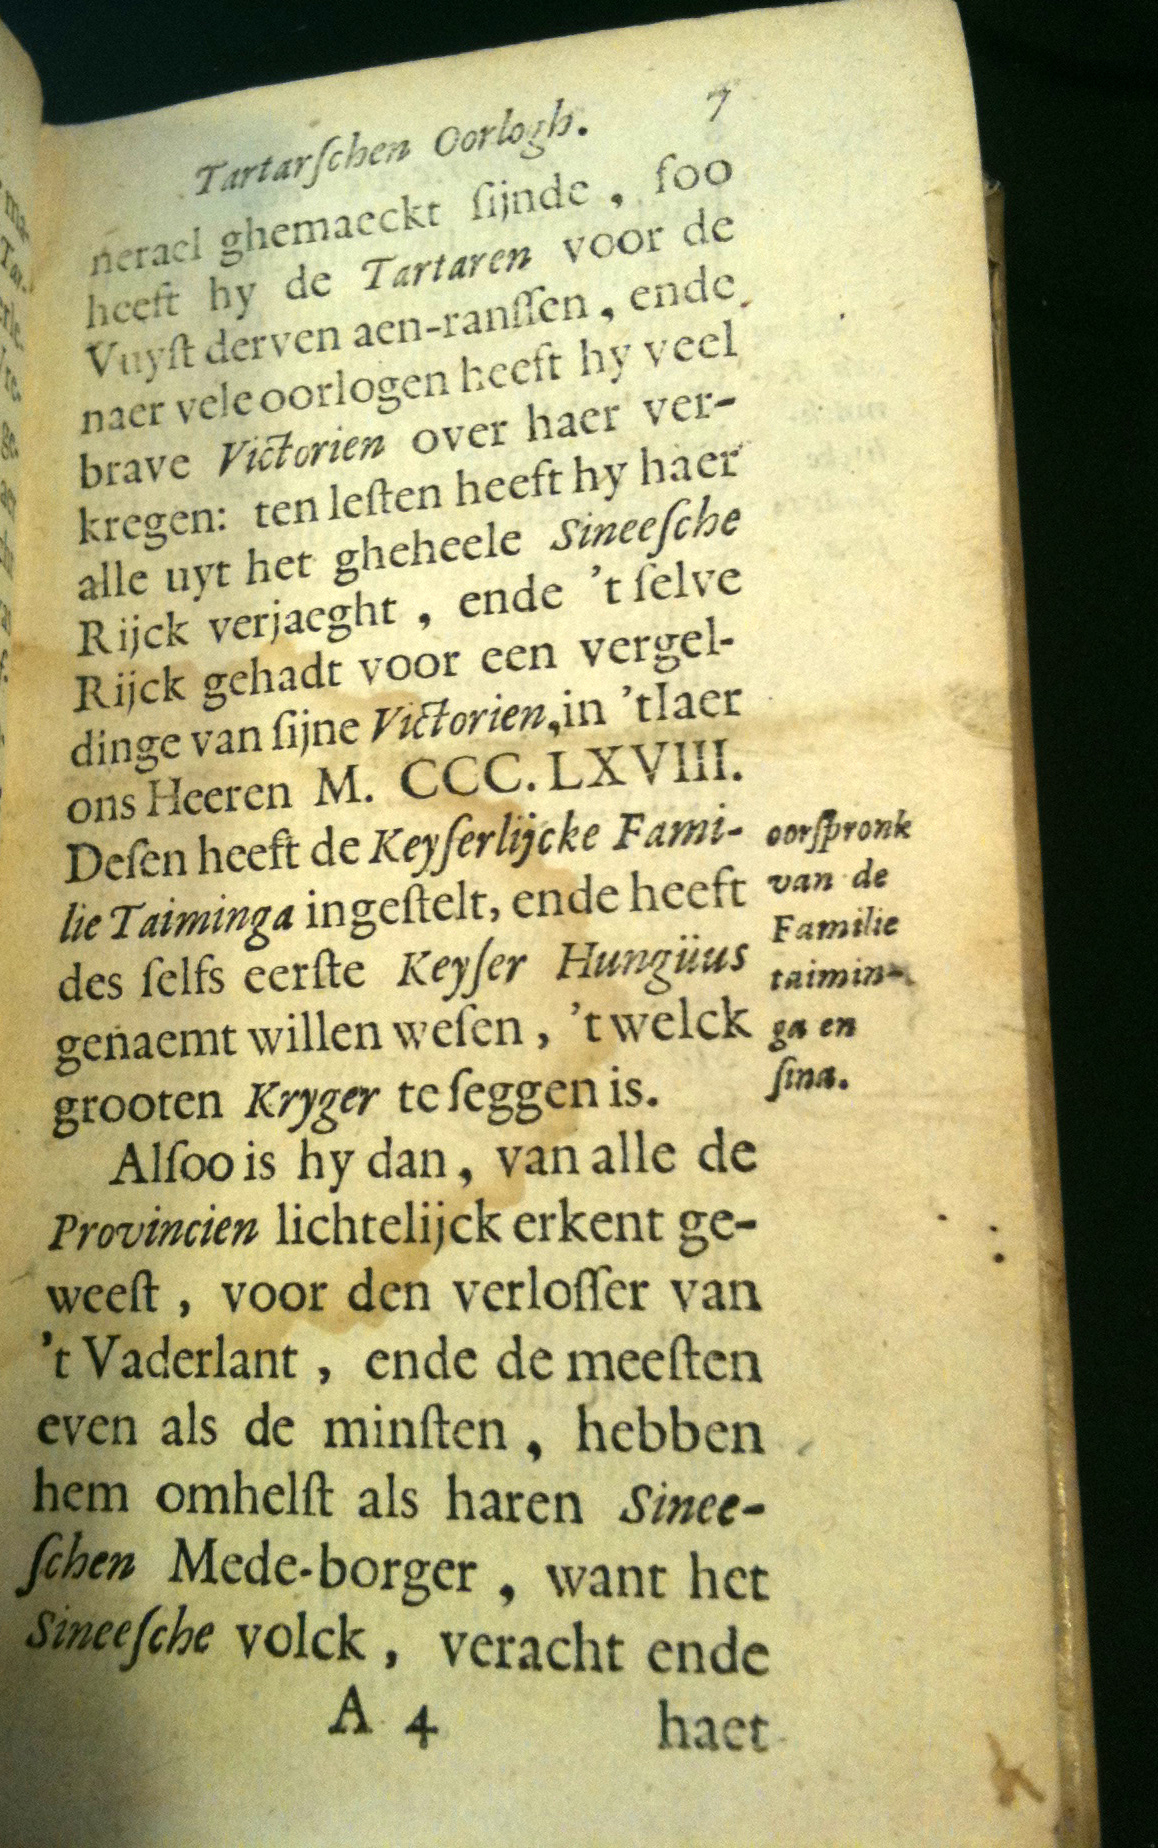 Tartarſchen Oorlogh. 7
nerael ghemaeckt ſijnde, ſoo
heeft hy de Tartaren voor de
Vuyſt derven aen-ranſſen, ende
naer vele oorlogen heeft hy veel
brave Victorien over haer ver-
kregen: ten leſten heeft hy haer
alle uyt het gheheele Sineeſche
Rijck verjaeght, ende 't ſelve
Rijck gehadt voor een vergel-
dinge van ſijne Victorien, in 't Iaer
ons Heeren M. CCC. LXVIII.
Deſen heeft de Keyſerlijcke Fami-
lie Taiminga ingeſtelt, ende heeft
des ſelfs eerſte Keyſer Hungüus
genaemt willen weſen, 't welck
grooten Kryger te ſeggen is.
oorſpronk
van de
Familie
taimin-
ga en
ſina.
Alſoo is hy dan, van alle de
Provincien lichtelijck erkent ge-
weeſt, voor den verloſſer van
't Vaderlant, ende de meeſten
even als de minſten, hebben
hem omhelſt als haren Sinee-
ſchen Mede-borger, want het
Sineeſche volck, veracht ende
A 4 haet